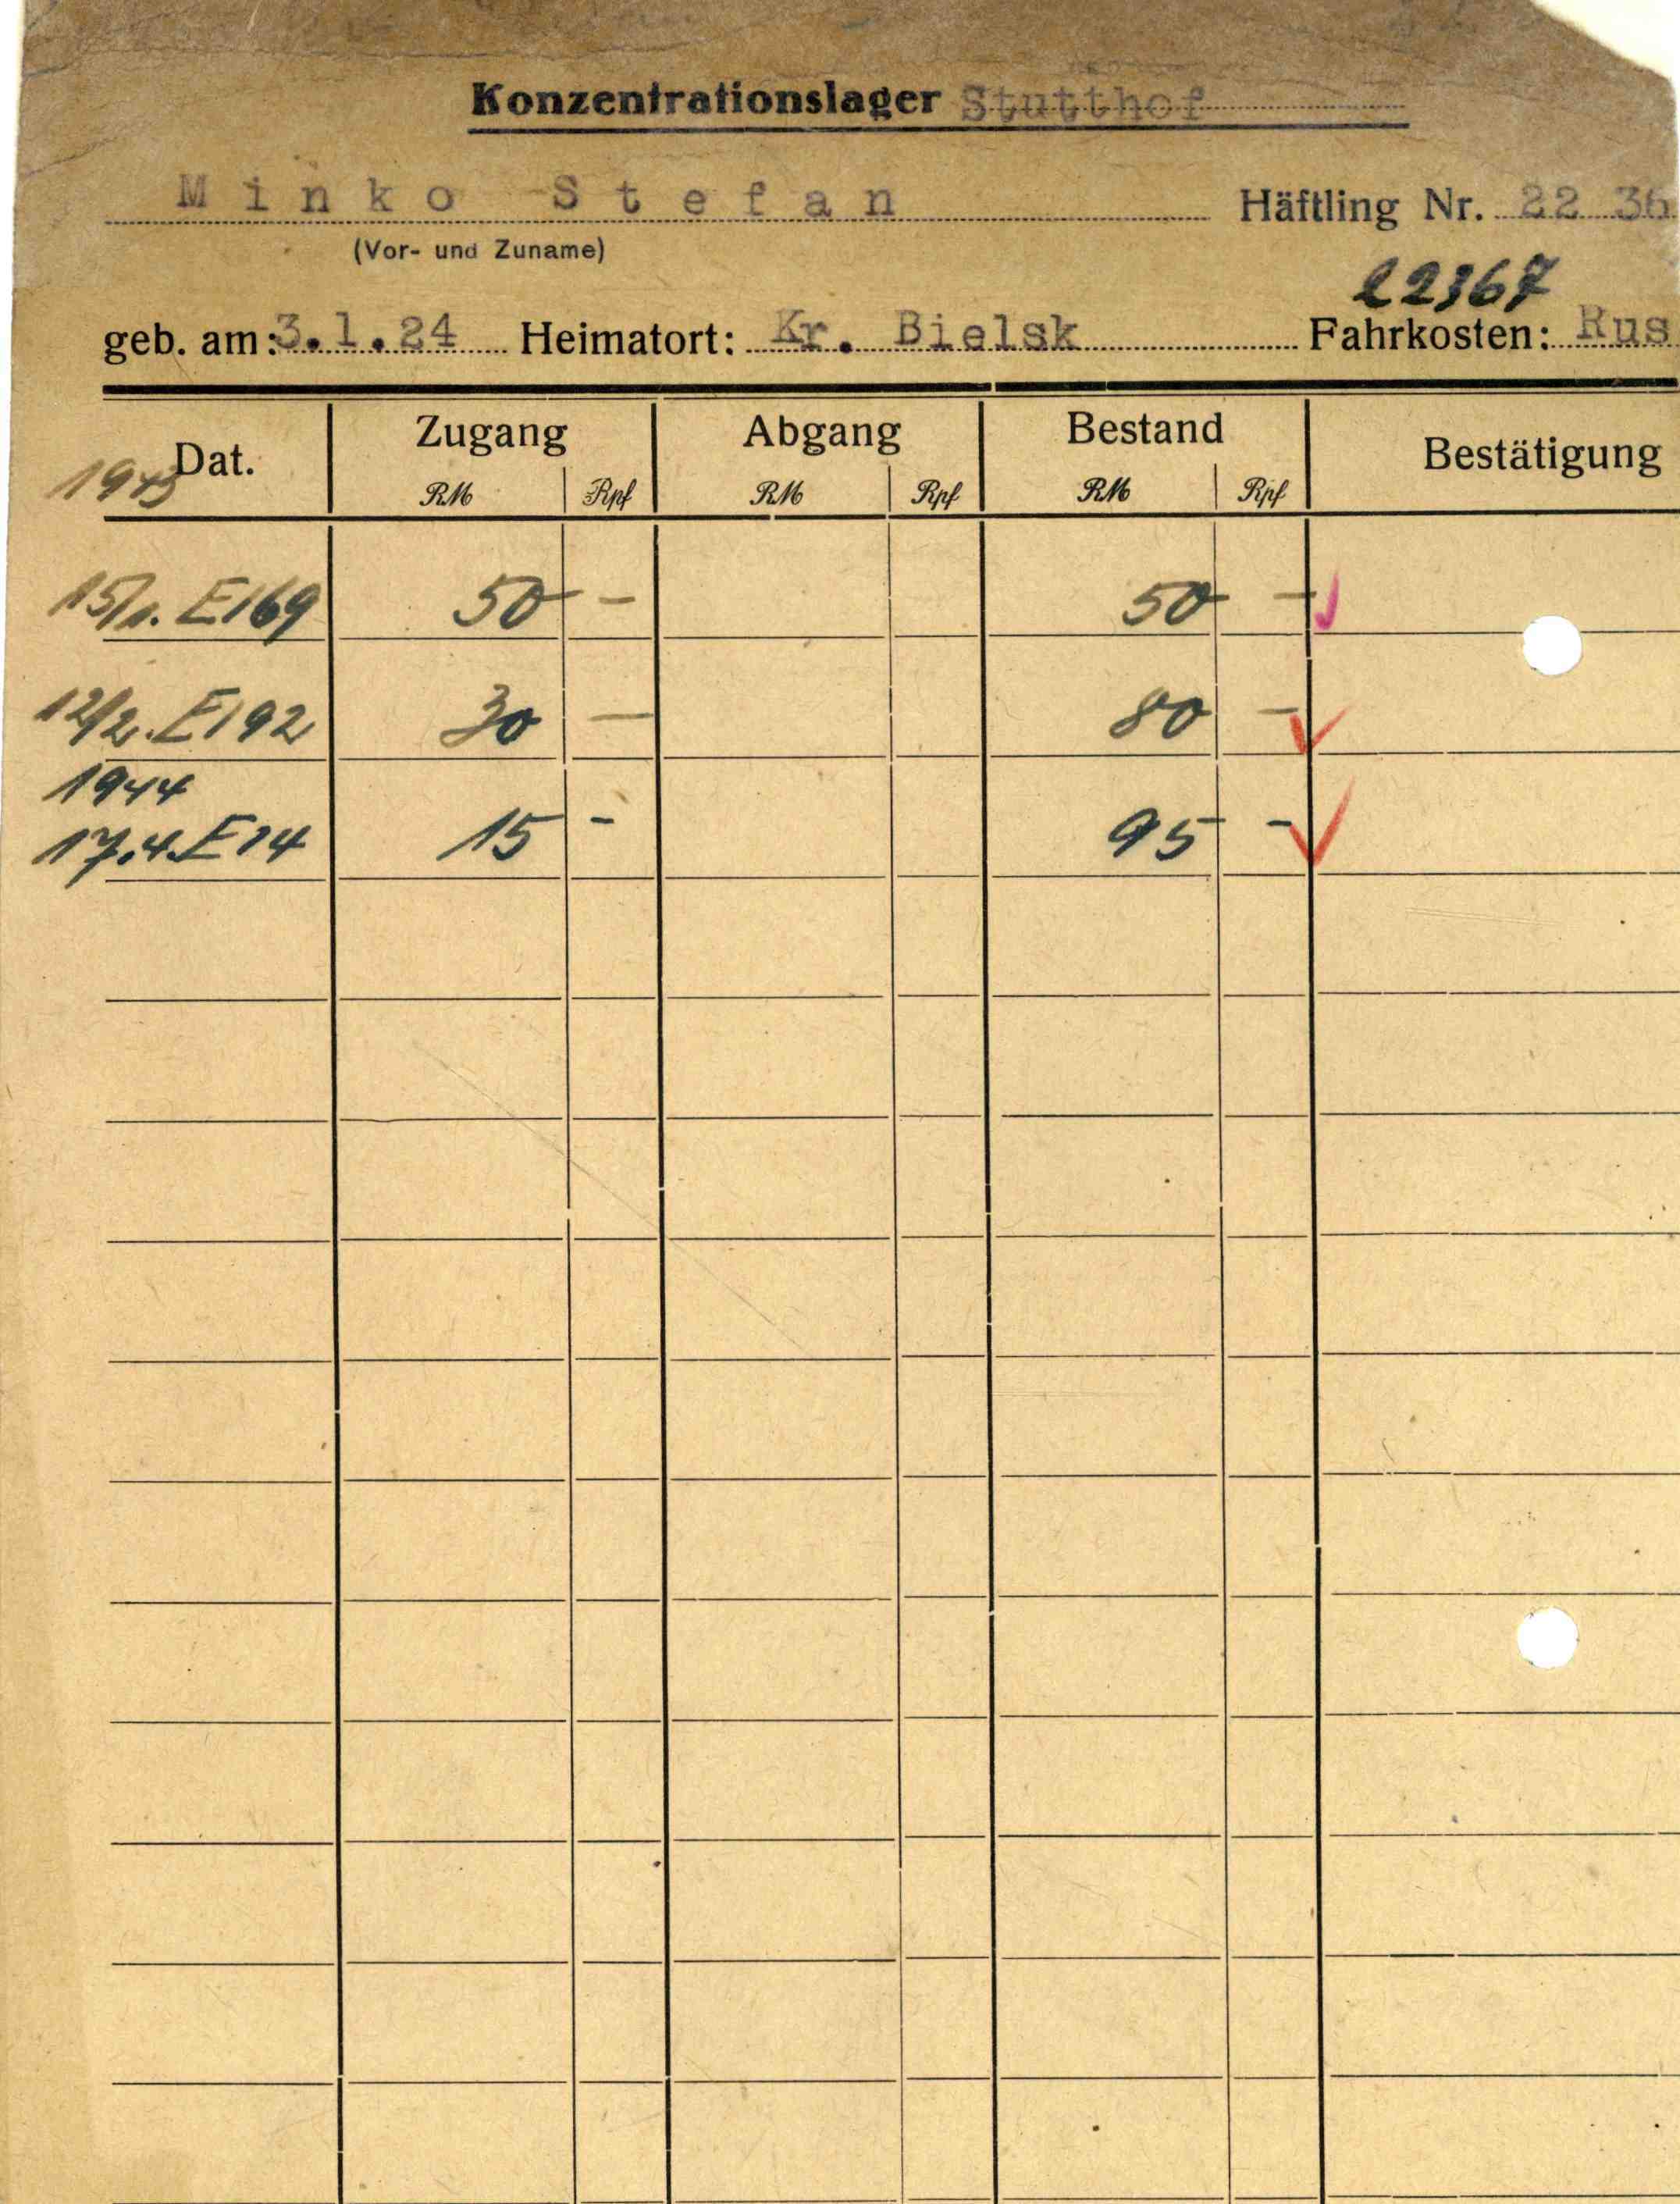 Konzentrationslager Stutthof
Minko Stefan Häftling Nr. 22 36
(Vor- und Zuname)
22367
geb. am: 3.1.24 Heimatort: Kr. Bielsk Fahrkosten: Rus
Dat. Zugang Abgang Bestand Bestätigung
1943 RM Rpf RM Rpf RM Rpf
15/1. E169 50 - 50 -
12/2. E192 30 - 80 -
1944
17.4. E14 15 - 95 -